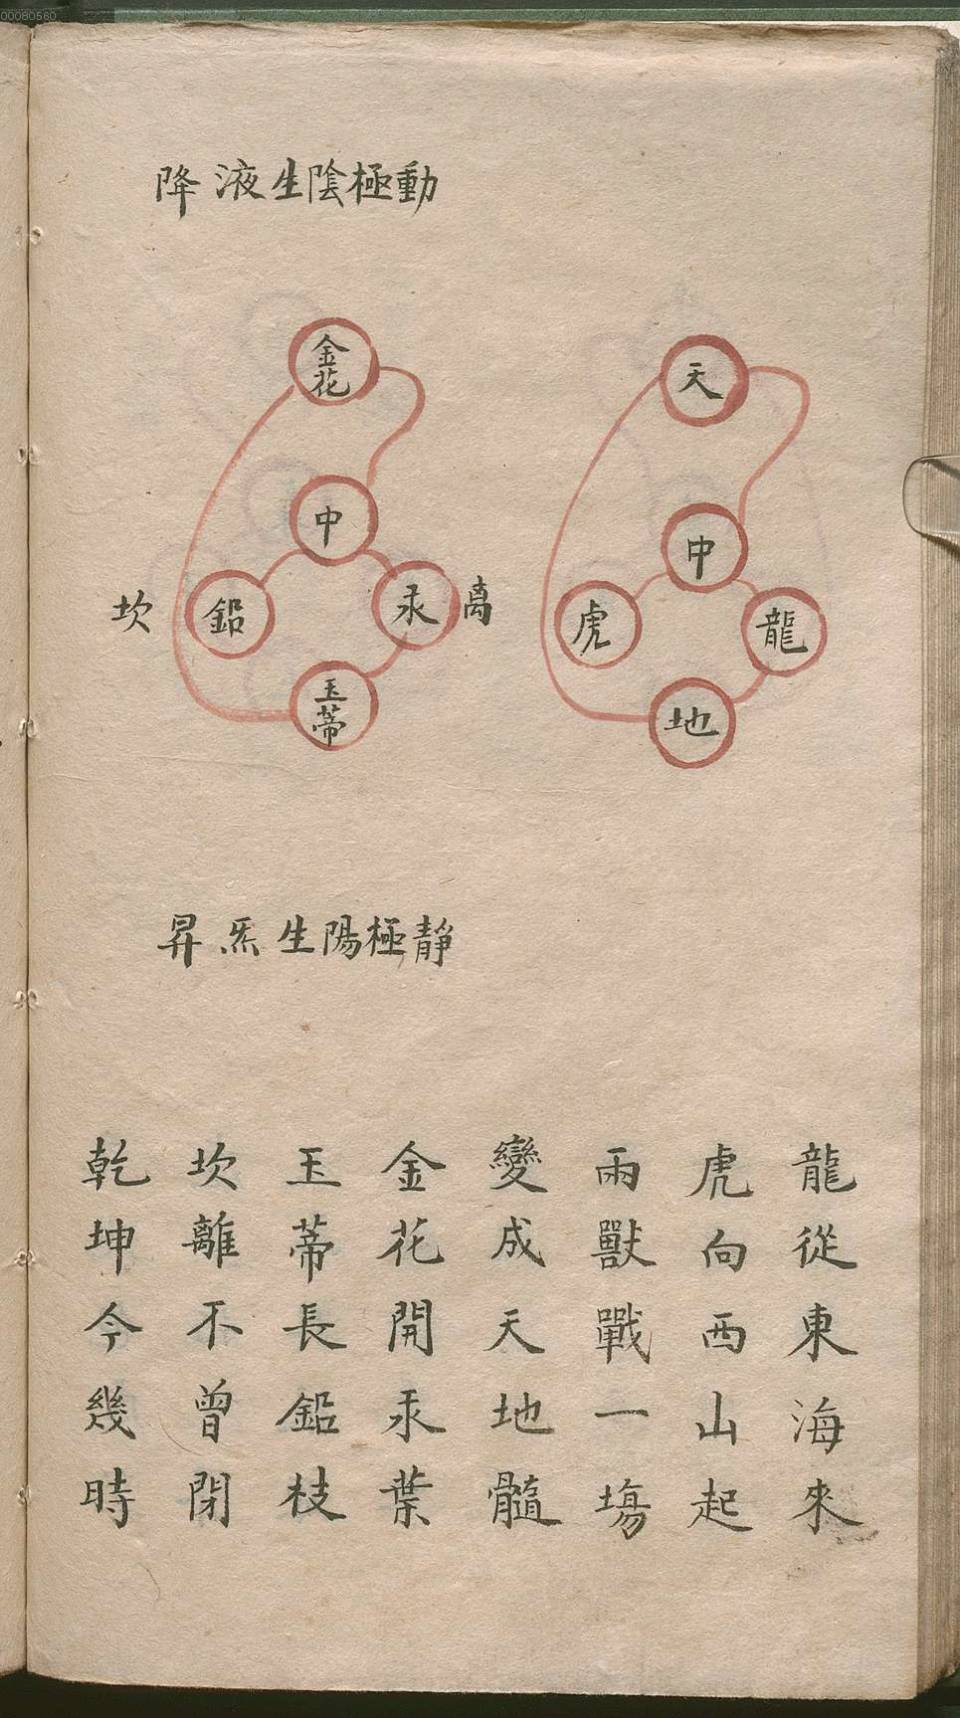 00080560
動極陰生液降
天
中
虎
龍
地
金花
中
坎
鉛
汞
离
玉蒂
静極陽生炁昇
龍從東海來
虎向西山起
兩獸戰一塲
變成天地髓
金花開汞葉
玉蒂長鉛枝
坎離不曾閉
乾坤今幾時